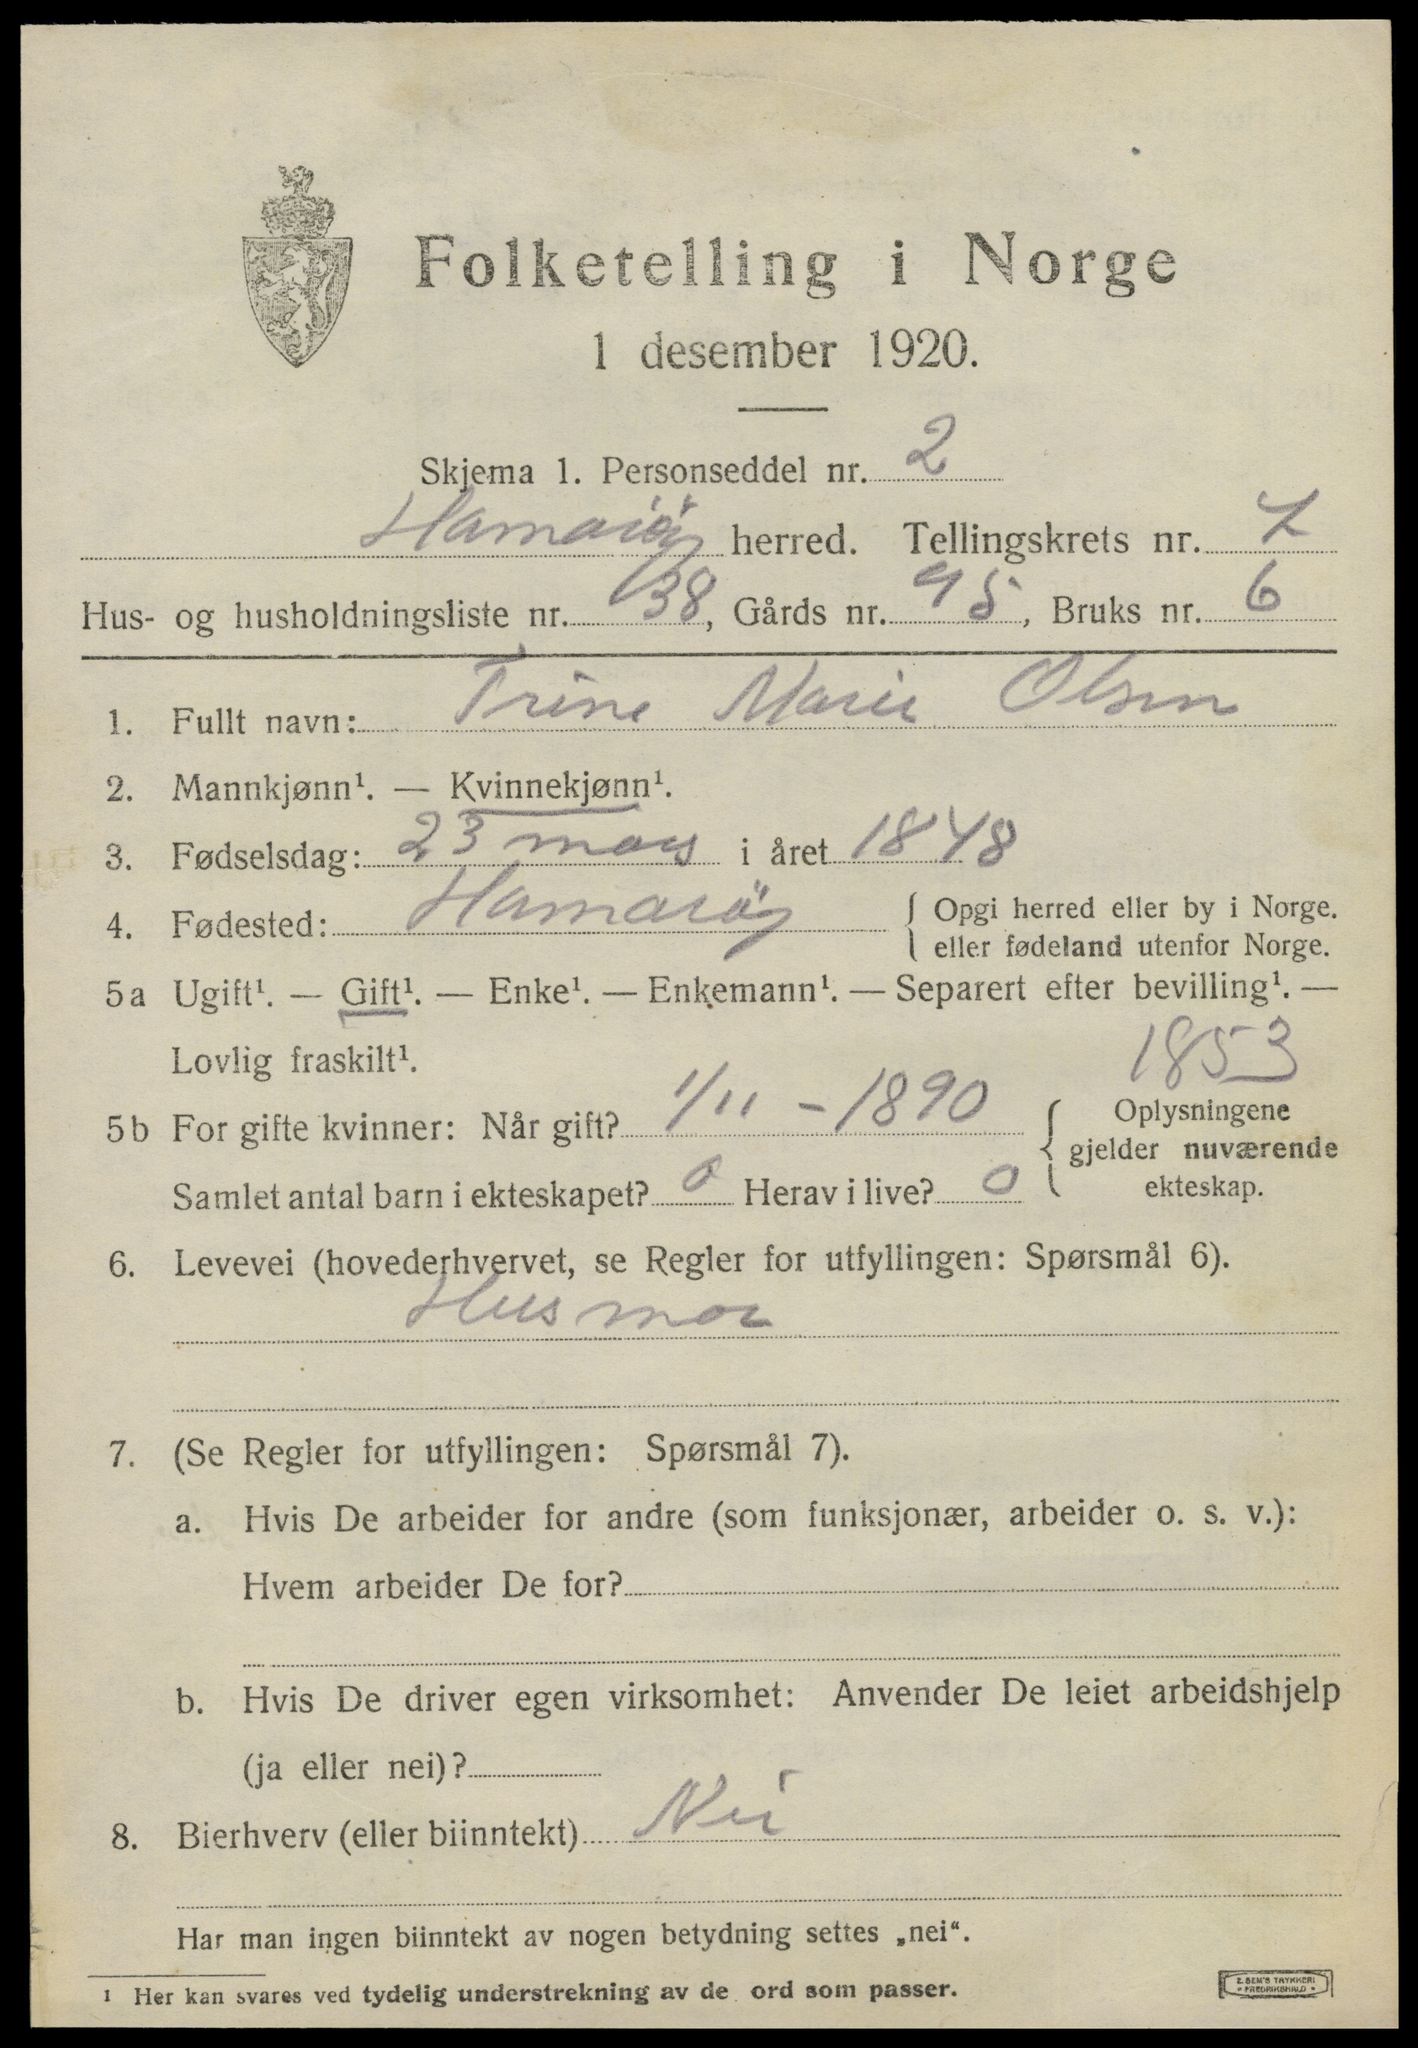 Folketelling i Norge
1 desember 1920.
Skjema 1. Personseddel nr. 2
Hamarøy herred. Tellingskrets nr. 7
Hus- og husholdningsliste nr. 138, Gårds nr. 95, Bruks nr. 6
1. Fullt navn: Trine Marie Olsen
2. Mannkjønn¹. — Kvinnekjønn¹.
3. Fødselsdag: 23 mars i året 1848
4. Fødested: Hamarøy { Opgi herred eller by i Norge.
eller fødeland utenfor Norge.
5a Ugift¹. — Gift¹. — Enke¹. — Enkemann¹. — Separert efter bevilling¹. —
Lovlig fraskilt¹. 1853
5b For gifte kvinner: Når gift? 1/11 - 1890 { Oplysningene
gjelder nuværende
Samlet antal barn i ekteskapet? 0 Herav i live? 0 ekteskap.
6. Levevei (hovederhvervet, se Regler for utfyllingen: Spørsmål 6).
Husmor
7. (Se Regler for utfyllingen: Spørsmål 7).
a. Hvis De arbeider for andre (som funksjonær, arbeider o. s. v.):
Hvem arbeider De for?
b. Hvis De driver egen virksomhet: Anvender De leiet arbeidshjelp
(ja eller nei)?
8. Bierhverv (eller biinntekt) Nei
Har man ingen biinntekt av nogen betydning settes „nei“.
¹ Her kan svares ved tydelig understrekning av de ord som passer.
E. SEM'S TRYKKERI
FREDRIKSHALD